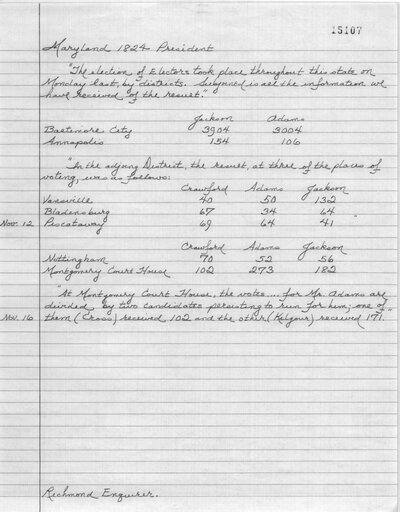 15107
Maryland 1824 President
"The election of Electors took place throughout this state on
Monday last, by districts. Subjoined is all the information we
have received of the result."
Jackson Adams
Baltimore City 3904 3004
Annapolis 154 106
"In the adjoing District, the result, at three of the places of
voting, was as follows:
Crawford Adams Jackson
Vansville 40 50 132
Bladensburg 67 34 64
Nov. 12 Piscataway 69 64 41"
Crawford Adams Jackson
Nottingham 70 52 56
Montgomery Court House 102 273 182
"At Montgomery Court House, the votes.... for Mr. Adams are
divided by two candidates persisting to run for him; one of
Nov. 16 them (Cross) received 102 and the other (Kilgour) received 171."
Richmond Enquirer.